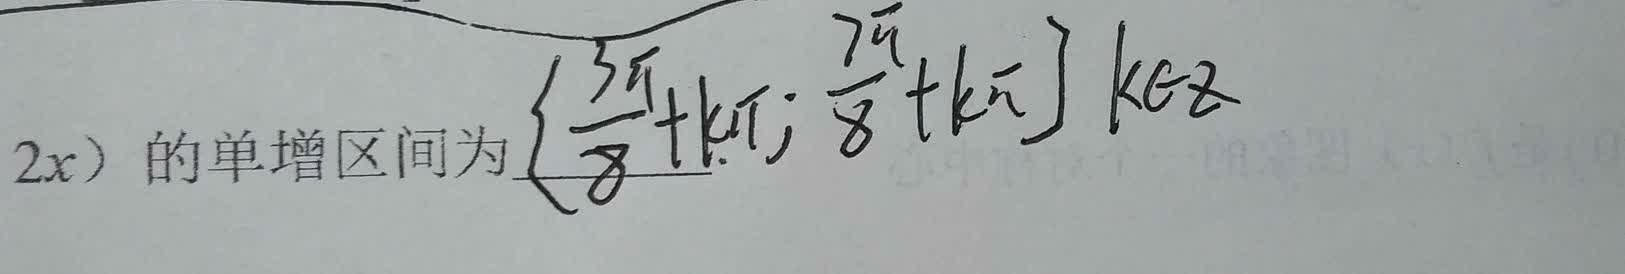 2x）的单增区间为[3π/8+kπ; 7π/8+kπ] k∈Z